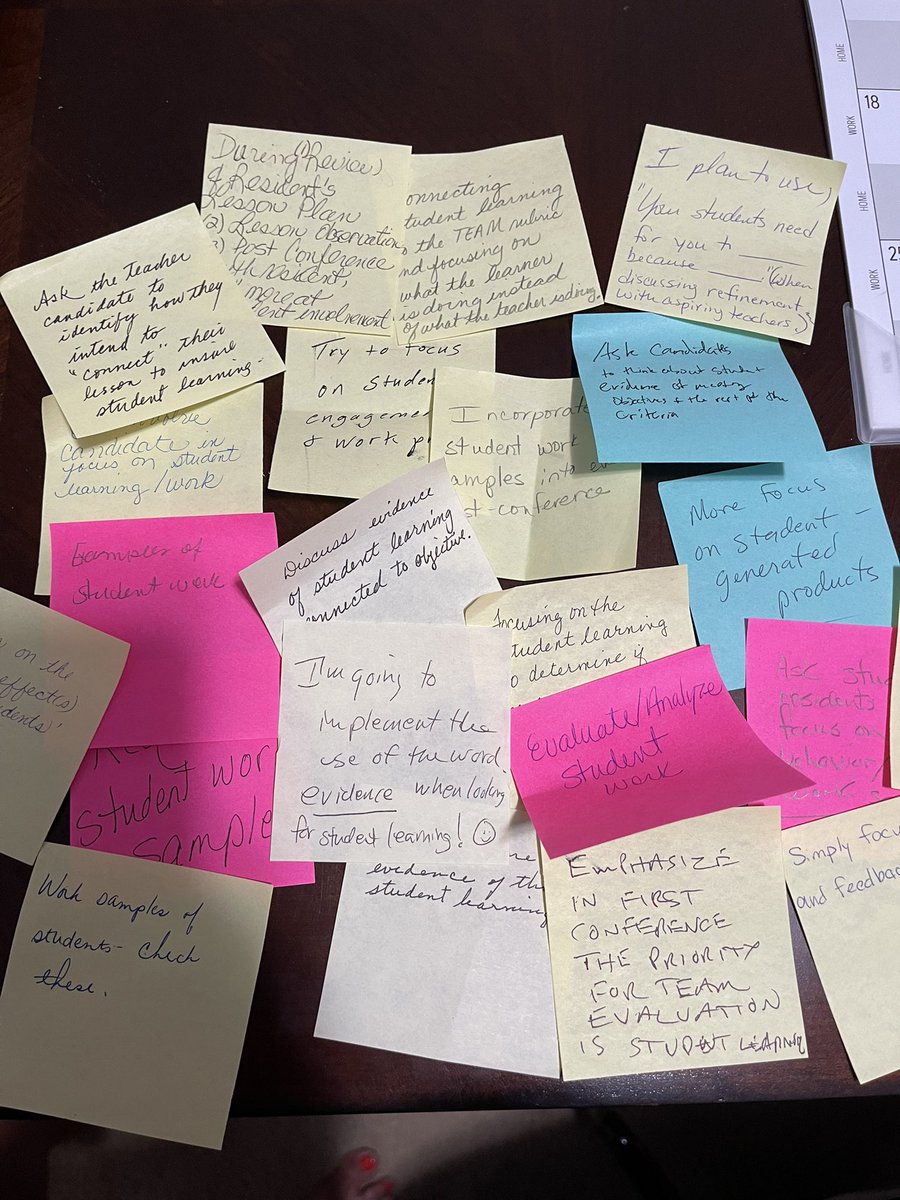 During (1) Review
of Resident's
Lesson Plan
(2) Lesson Observation
Post Conference
resident,
onnecting
tudent learning
the TEAM rubric
nd focusing on
what the learner
is doing instead
of what the teacher is doing.
I plan to use,
"Your students need
for you to ______
because ______" (When
discussing refinement
with aspiring teachers.)
HOME
18
WORK
HOME
25
WORK
Ask the Teacher
candidate to
identify how they
intend to
"connect" their
lesson to insure
student learning.
Try to focus
on studen
engageme
& work
Ask Candidates
to think about student
evidence of meeting
objectives & the rest of the
criteria
candidate in
focus on student
learning/work
Incorporate
student work
amples into
st-conference
More Focus
on student-
generated
products
Examples of
student work
Discuss evidence
of student learning
onnected to objective.
Focusing on the
tudent learning
o determine if
on the
effect(s)
udents'
I'm going to
implement the
use of the word
evidence when looking
for student learning! ☺
Evaluate/Analyze
student
work
Ask stu
residents
focus on
behavior/
work
student wor
sample
evidence of th
student learning
Work samples of
students- check
these.
EMPHASIZE
IN FIRST
CONFERENCE
THE PRIORITY
FOR TEAM
EVALUATION
IS STUDENT LEARNING
Simply focu
and feedbac